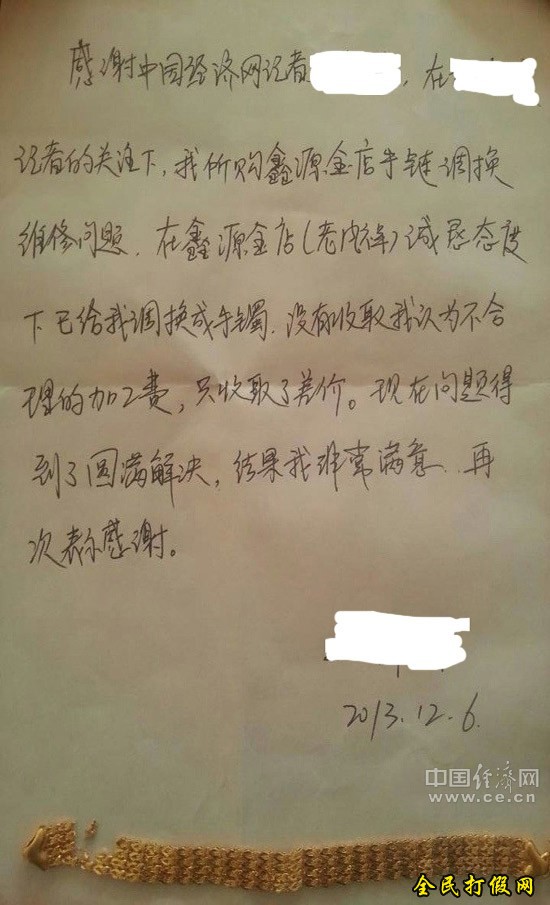 感谢中国经济网记者 ，在
记者的关注下，我所购鑫源金店手链调换
维修问题．在鑫源金店(老庆祥)诚恳态度
下已给我调换成手镯．没有收取我认为不合
理的加工费，只收取了差价。现在问题得
到了圆满解决，结果我非常满意．再
次表示感谢。
2013.12.6.
中国经济网
www.ce.cn
全民打假网